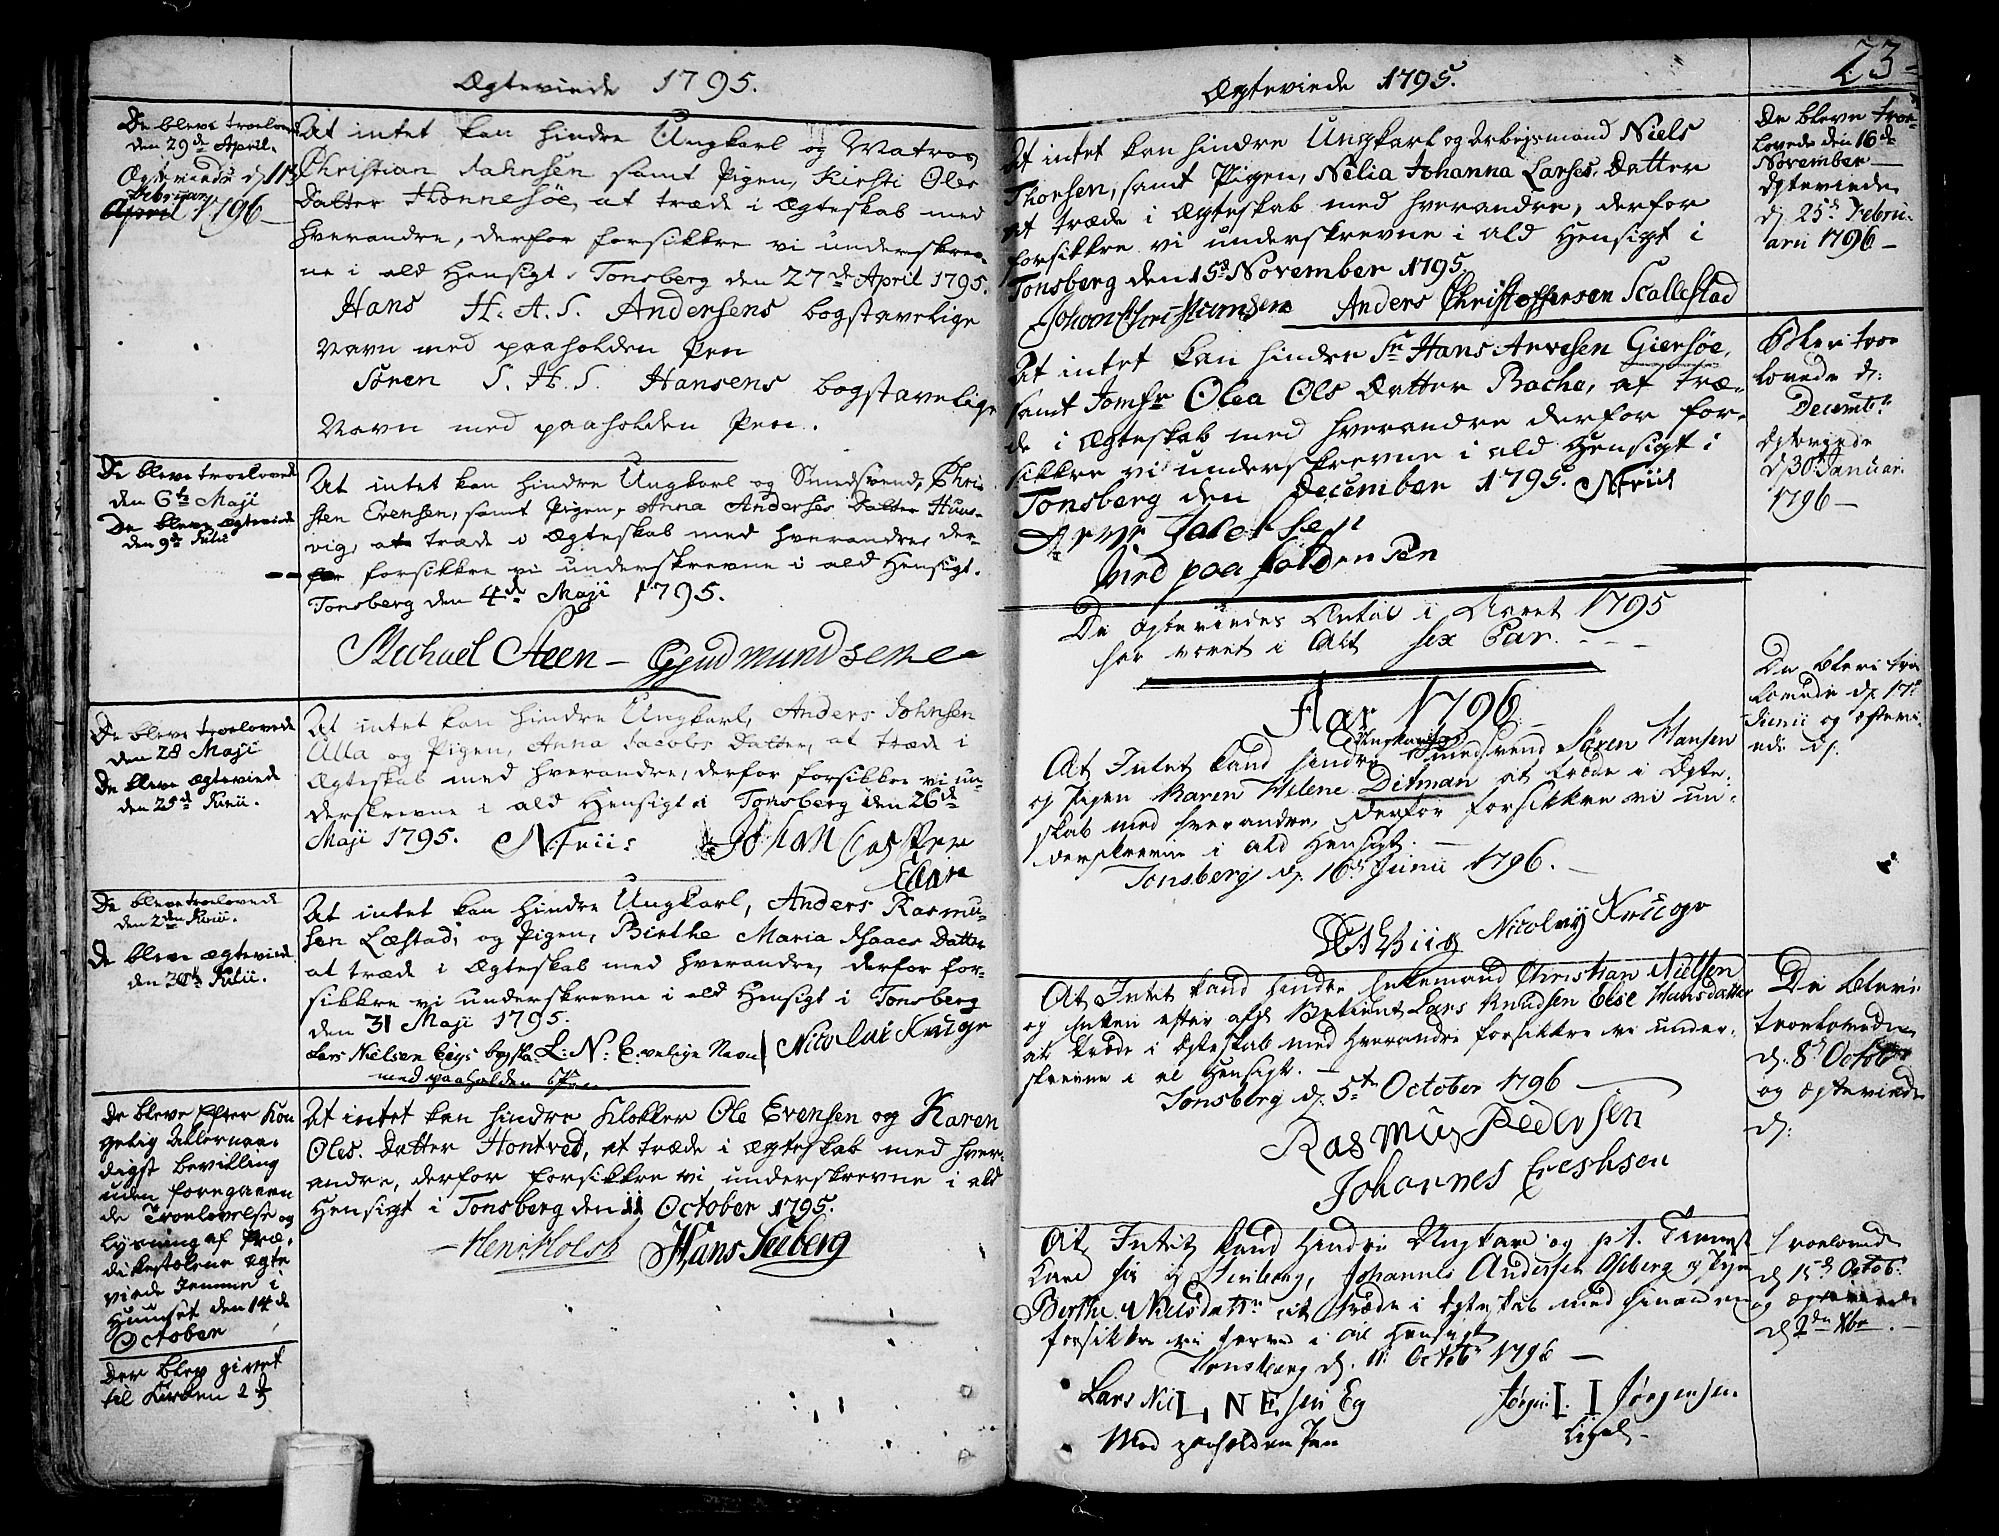 Ægteviede 1795.
De bleve troelovede
den 29de April.
Ægteviede d 11te
Februari
April 1796 —
At intet kan hindre Ungkarl og Matros
Christian Jahnsen samt Pigen, Kirsti Ols
Datter Honnesøe, at træde i Ægteskab med
hverandre, derfor forsikkre vi underskrev-
ne i ald Hensigt, Tonsberg den 27de April 1795.
Hans H. A. S. Andersens bogstavelige
Navn med paaholden Pen
Søren S. H. S. Hansens bogstavelige
Navn med paaholden Pen.
De bleve troelovede
den 6te Maji
De bleve ægteviede
den 9de Julii
At intet kan hindre Ungkarl og Smedsvend, Chri-
sten Evensen, samt Pigen, Anna Anderses Datter Huus-
vig, at træde i Ægteskab med hverandre, der-
for forsikkre vi underskrevne i ald Hensigt.
Tonsberg den 4de Maji 1795.
Michael Steen — Gjudmundsene
De bleve troelovede
den 28 Maji
De bleve ægteviede
den 25de Junii.
At intet kan hindre Ungkarl, Anders Johnsen
Ulla og Pigen, Anna Jacobs Datter, at træde i
Ægteskab med hverandre, derfor forsikkre vi un-
derskrevne i ald Hensigt i Tonsberg den 26de
Maji 1795. N Friis Johan Casper
De bleve troelovede
den 2den Junii.
De bleve ægteviede
den 30te Julii.
At intet kan hindre Ungkarl, Anders Rasmu-
sen Læstad, og Pigen, Birthe Maria Isaacs Datter
at træde i Ægteskab med hverandre, derfor for-
sikkre vi underskrevne i ald Hensigt i Tonsberg
den 31 Maji 1795.
Lars Nielsen Eegs bogsta L: N: E: velige Navn Nicolai Kruge
med paaholden Pen
De bleve efter Kon
gelig Allernaa-
digst bevilling
uden foregaaen
de Troelovelse og
Lysning af Præ-
dikestolene ægte
viede hiemme i
Huuset den 14de
October
At intet kan hindre Klokker Ole Evensen og Karen
Oles. Datter Hontved, at træde i Ægteskab med hver-
andre, derfor forsikkre vi underskrevne i ald
Hensigt i Tonsberg den 11 October 1795.
Hen: Holst Hans Seeberg
Der blev givet
til Kirken 2
23
Ægteviede 1795.
At intet kan hindre Ungkarl og Arbeysmand Niels
Thorsen, samt Pigen, Nelia Johanna Larses. Datter
at træde i Ægteskab med hverandre, derfor
forsikkre vi underskrevne i ald Hensigt i
Tonsberg den 15d November 1795.
Johan Christiansen Anders Christoffersen Scallestad
De bleve troe-
lovede den 16de
November —
Ægteviede
d. 25de Febru-
arii 1796 —
At intet kan hindre Sr Hans Arvesen Giersøe,
samt Jomfr Olea Ols Datter Bache, at træ-
de i Ægteskab med hverandre derfor for-
sikkre vi underskrevne i ald Hensigt i
Tonsberg den December 1795. N Friis
Arve Jacobsen
Med paa holden Pen
Blev troe
lovede d:
Decembr.
Ægteviede
d 30te Januar.
1796 —
De Ægteviedes Antal i Aaret 1795
har været i Alt sex Par.
Aar 1796
Ungkarl og
At Intet kand hindre Smedsvend Søren Hansen
og Pigen Karen Helene Ditman at træde i Ægte-
skab med hverandre, derfor forsikkre vi un-
derskrevne i ald Hensigt. —
Tonsberg d. 16de Junii 1796. —
Nicolay Kruge
De blev troe
lovede d. 17de
Junii og Ægtevi-
ede d.
At Intet kand hindre Enkemand Christian Nielsen
og Enken efter afg. Betient Lars Knudsen Else Hansdatter
at træde i Ægteskab med hverandre forsikkre vi under-
skrevne i al Hensigt. —
Tonsberg d. 5te October 1796
Rasmus Pedersen
Johannes Ereshsen
De blev
troelovede
d. 8de Octobr
og ægteviede
d:
At Intet kand hindre Ungkarl og p.t. Tieneste
Karl her i Tonsberg, Johannes Andersen Asberg og Pigen
Berthe Nielsdattr at træde i Ægteskab med hinanden
forsikkre vi herved i al Hensigt
Tonsberg d. 11 Octobr 1796 —
Lars Niel L. N E. sen Eg Jørgen I. I Jørgensen
Med paaholden Pen Ligel.
Troelovede
d 15de Octob:
og ægteviede
d 2den Xbr.